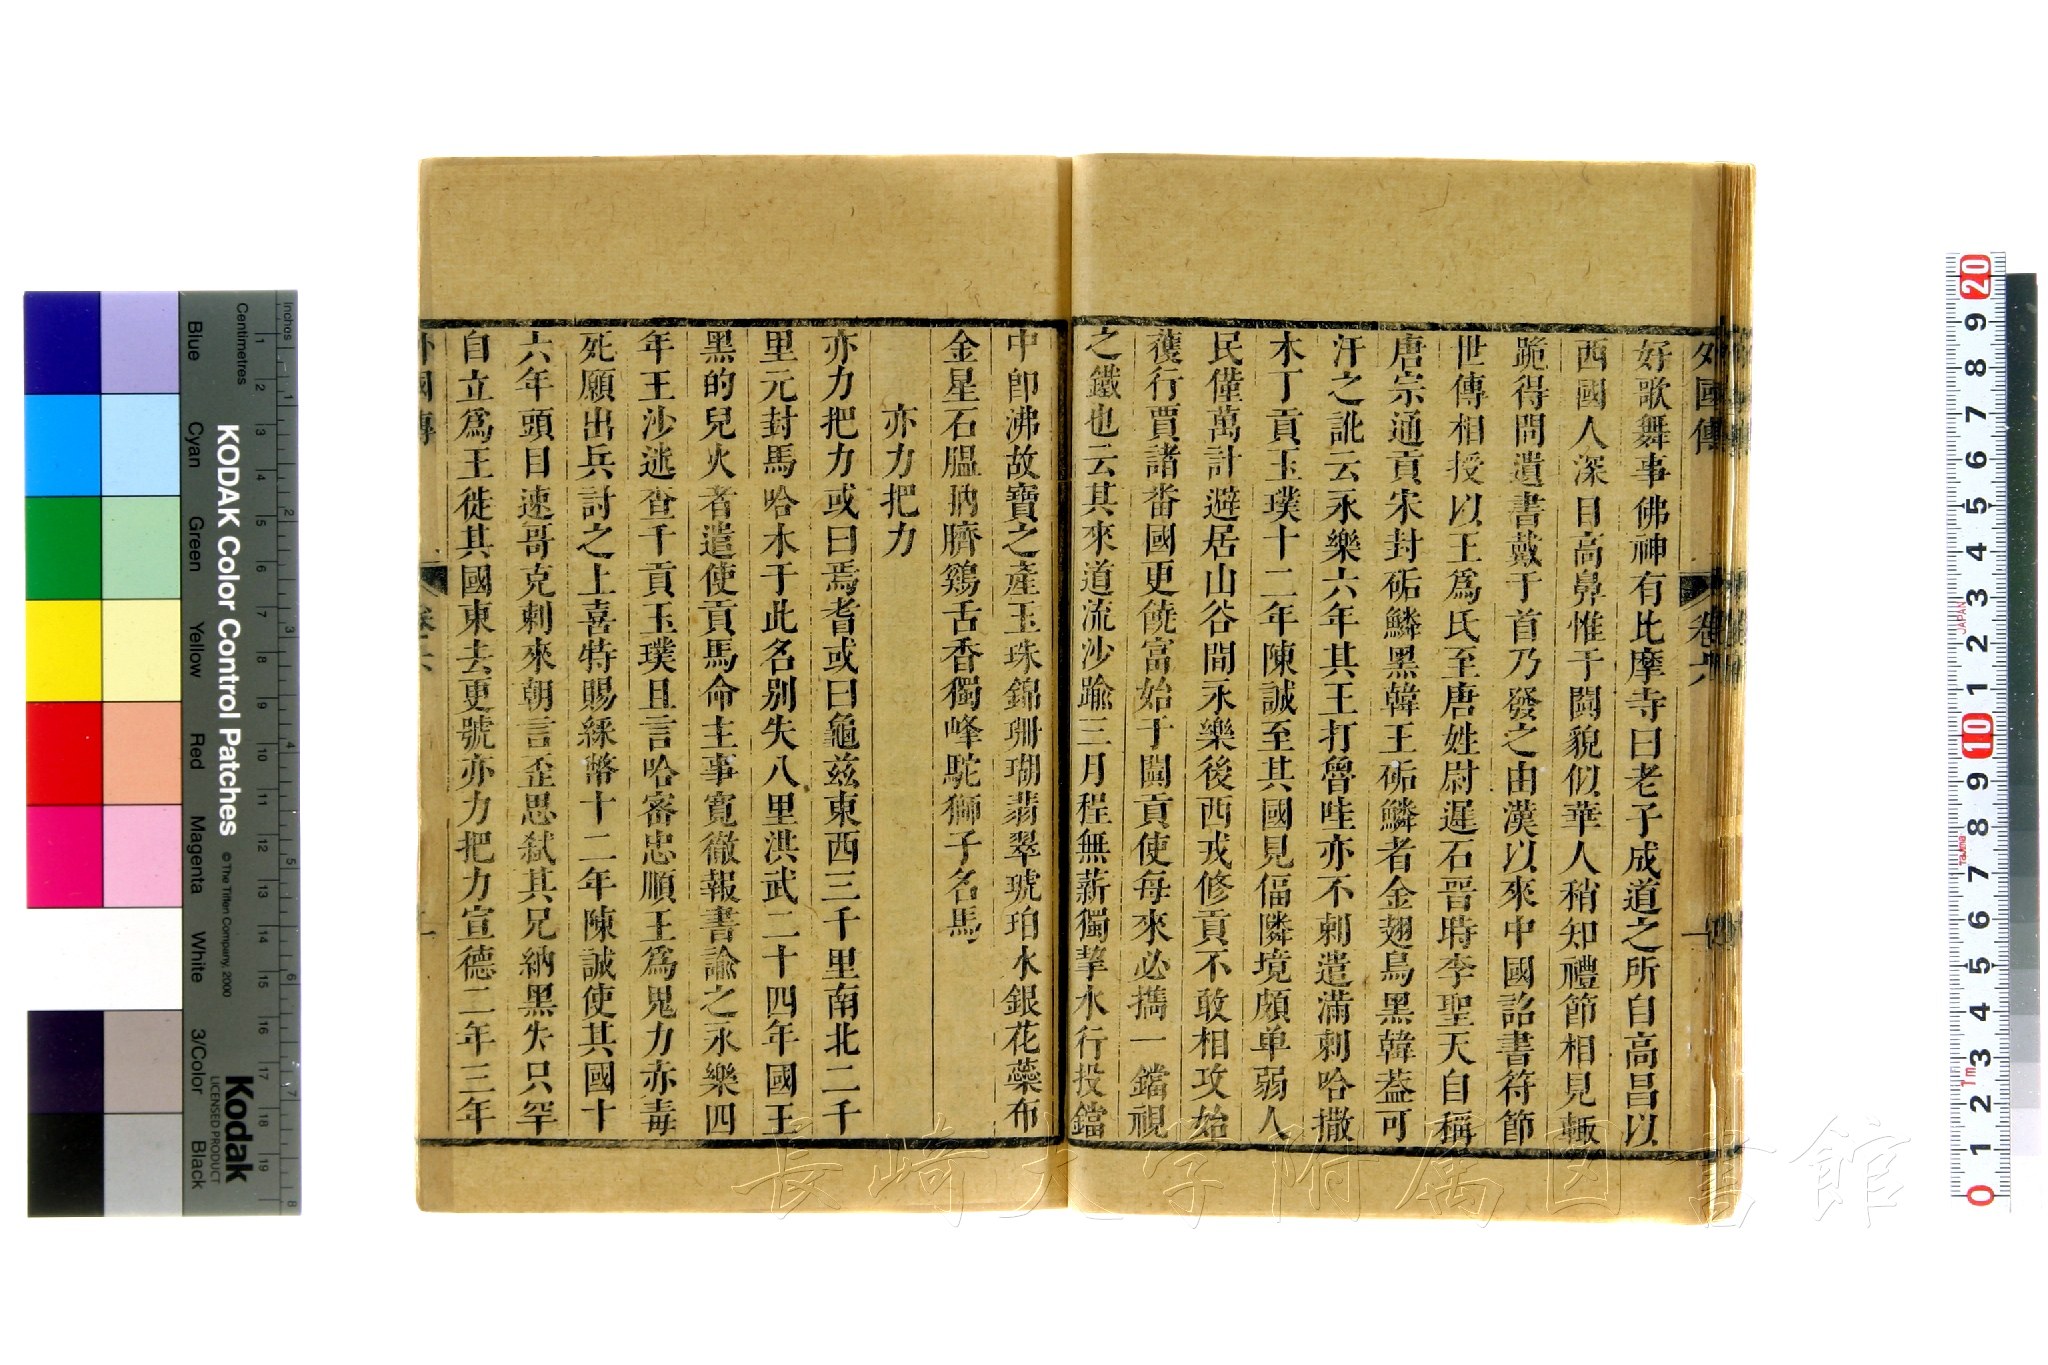 外國傳
卷六
好歌舞事佛神有比摩寺曰老子成道之所自高昌以
西國人深目高鼻惟于闐貌似華人稍知禮節相見輒
跪得問遺書戴于首乃發之由漢以來中國詔書符節
世傳相授以王爲氏至唐姓尉遲石晉時李聖天自稱
唐宗通貢宋封砳鱗黑韓王砳鱗者金翅鳥黑韓葢可
汗之訛云永樂六年其王打魯哇亦不剌遣滿剌哈撒
木丁貢玉璞十二年陳誠至其國見偪隣境頗单弱人
民僅萬計避居山谷間永樂後西戎修貢不敢相攻始
獲行賈諸畨國更饒富始于闐貢使每來必㩦一鐺視
之鐵也云其來道流沙踰三月程無薪獨挈水行投鐺
中卽沸故寶之產玉珠錦珊瑚翡翠琥珀水銀花蘂布
金星石膃肭臍鷄舌香獨峰駝獅子名馬
亦力把力
亦力把力或曰焉耆或曰龜茲東西三千里南北二千
里元封馬哈木于此名别失八里洪武二十四年國王
黑的兒火者遣使貢馬命主事寬徹報書諭之永樂四
年王沙迷查千貢玉璞且言哈密忠順王爲鬼力赤毒
死願出兵討之上喜特賜綵幣十二年陳誠使其國十
六年頭目速哥克剌來朝言歪思弒其兄納黑失只罕
自立爲王徙其國東去更號亦力把力宣德二年三年
外國傳
卷六
長崎大学附属図書館
KODAK Color Control Patches
© The Tiffen Company, 2000
Kodak
LICENSED PRODUCT
Inches
Centimetres
Blue
Cyan
Green
Yellow
Red
Magenta
White
3/Color
Black
JAPAN